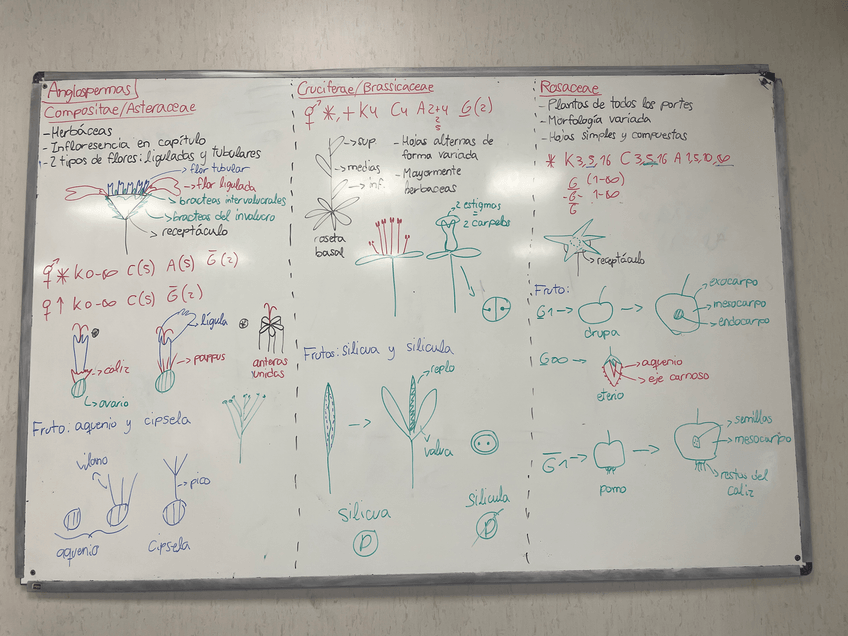 Angiospermas
Compositae/Asteraceae
- Herbáceas
- Infloresencia en capítulo
- 2 tipos de flores: liguladas y tubulares
flor tubular
flor ligulada
bracteas intervoluc​rales
bracteas del involucro
receptáculo
⚥ * K0-∞ C(5) A(5) G̅(2)
♀ ↑ K0-∞ C(5) G̅(2)
lígula
caliz
pappus
anteras unidas
ovario
Fruto: aquenio y cipsela
vilano
pico
aquenio
cipsela
Cruciferae/Brassicaceae
⚥ *, + K4 C4 A2+4 G̲(2)
sup
medias
inf.
roseta
basal
- Hojas alternas de
forma variada
- Mayormente
herbaceas
2 estigmas
=
2 carpelos
Frutos: silicua y silicula
replo
valva
Silicua
P
Silicula
P
Rosaceae
- Plantas de todos los portes
- Morfología variada
- Hojas simples y compuestas
* K 3,5,16 C 3,5,16 A 1,5,10,∞
G̲ (1-∞)
-G- 1-∞
G̅
receptáculo
Fruto:
G̲1 → drupa
exocarpo
mesocarpo
endocarpo
G̲∞ →
aquenio
eje carnoso
eterio
G̅1 →
pomo
semillas
mesocarpo
restos del
caliz